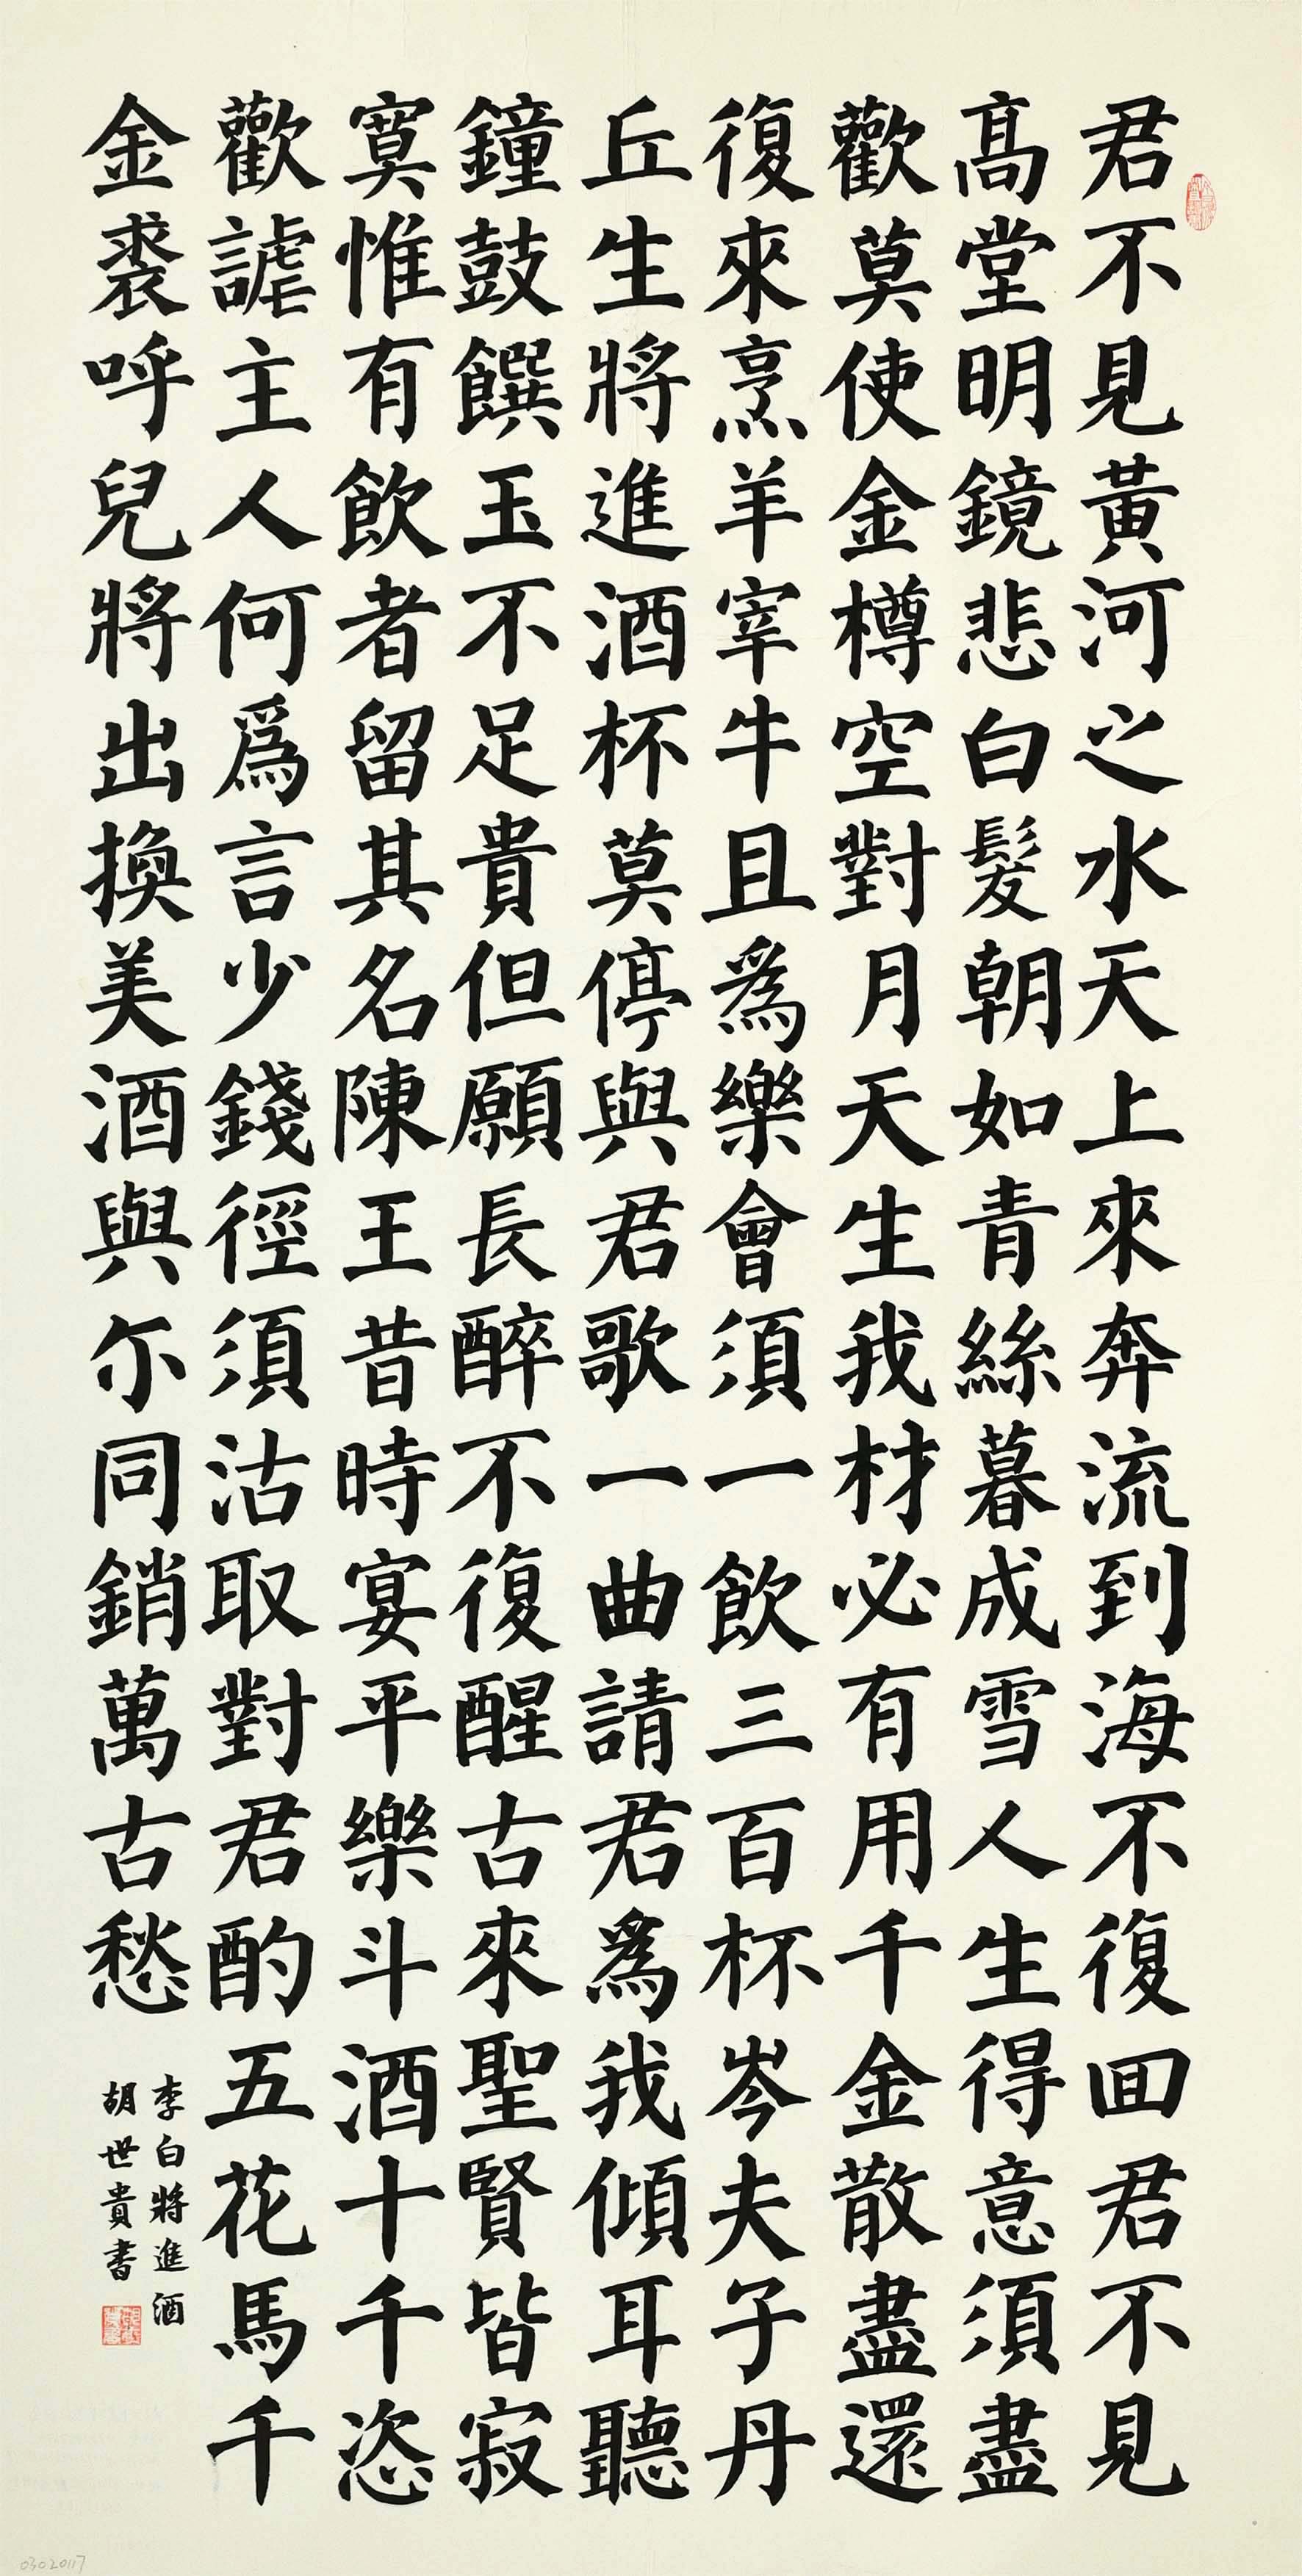 君不見黃河之水天上來奔流到海不復回君不見
高堂明鏡悲白髮朝如青絲暮成雪人生得意須盡
歡莫使金樽空對月天生我材必有用千金散盡還
復來烹羊宰牛且爲樂會須一飲三百杯岑夫子丹
丘生將進酒杯莫停與君歌一曲請君爲我傾耳聽
鐘鼓饌玉不足貴但願長醉不復醒古來聖賢皆寂
寞惟有飲者留其名陳王昔時宴平樂斗酒十千恣
歡謔主人何爲言少錢徑須沽取對君酌五花馬千
金裘呼兒將出換美酒與尓同銷萬古愁
李白將進酒
胡世貴書
03020117